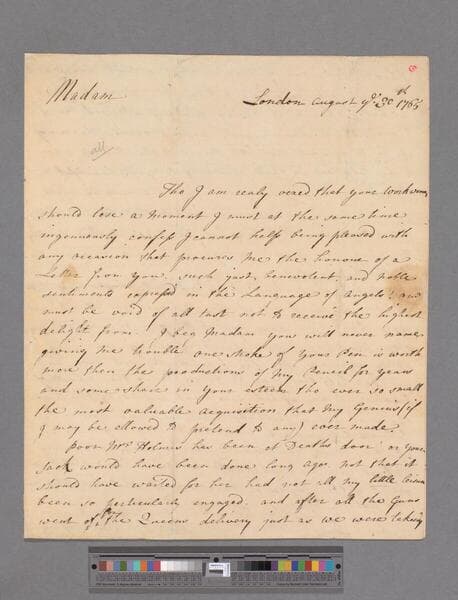 Madam
London august ye. 30th 1765
all
Tho I am realy vexed that your workwoman
should lose a Moment I must at the same time
ingenuously confess I cannot help being pleased with
any occasion that procures me the honour of a
Letter from you, such just, benevolent, and noble
sentiments expressed in the Language of Angels! one
must be void of all tast not to receive the highest
delight from. I beg Madam you will never name
giving me trouble one stroke of your Pen is worth
more then the productions of my Pencil for years
and some share in your esteem tho ever so small
the most valuable acquisition that my Genius (if
I may be allowed to pretend to any) ever made.
poor Mrs Holmes has been at Deaths door or your
Sack would have been done long ago. not that it
should have waited for her had not all my little leisure
been so perticularly engaged. and after all the Guns
went of for the Queens delivery just as we were taking